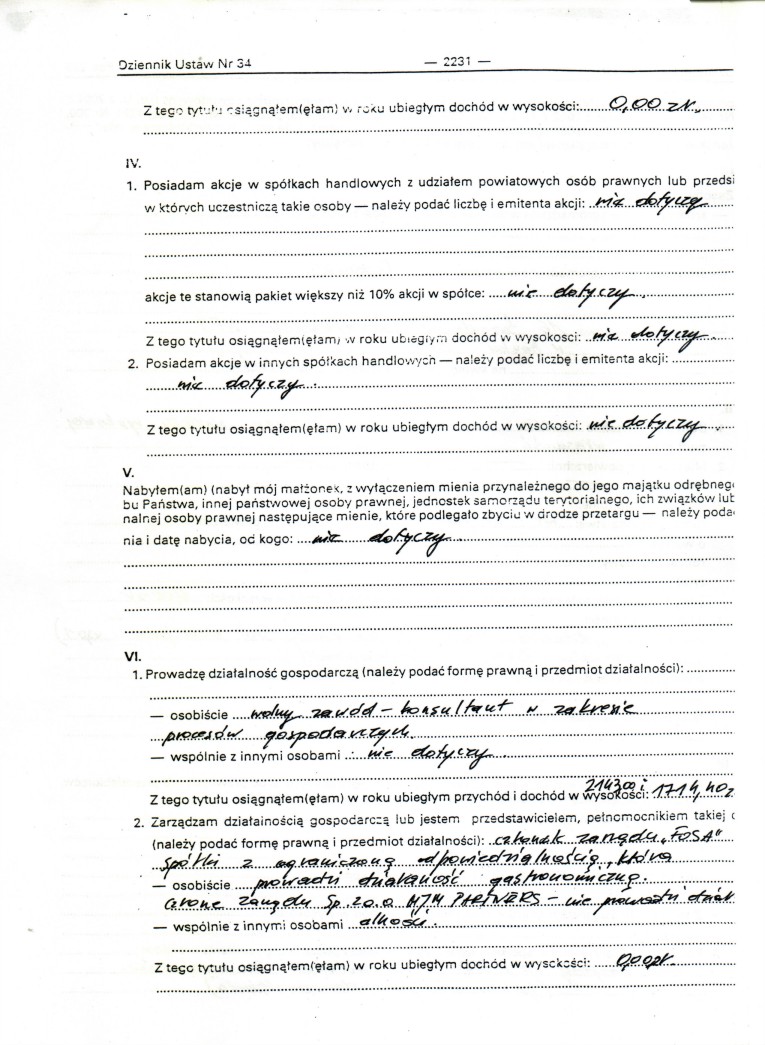 Dziennik Ustaw Nr 34 — 2231 —
Z tego tytułu osiągnąłem(ęłam) w roku ubiegłym dochód w wysokości: 0,00 zł.
IV.
1. Posiadam akcje w spółkach handlowych z udziałem powiatowych osób prawnych lub przedsi
w których uczestniczą takie osoby — należy podać liczbę i emitenta akcji: nie dotyczy
akcje te stanowią pakiet większy niż 10% akcji w spółce: nie dotyczy.
Z tego tytułu osiągnąłem(ęłam) w roku ubiegłym dochód w wysokości: nie dotyczy.
2. Posiadam akcje w innych spółkach handlowych — należy podać liczbę i emitenta akcji:
nie dotyczy.
Z tego tytułu osiągnąłem(ęłam) w roku ubiegłym dochód w wysokości: nie dotyczy.
V.
Nabyłem(am) (nabył mój małżonek, z wyłączeniem mienia przynależnego do jego majątku odrębneg
bu Państwa, innej państwowej osoby prawnej, jednostek samorządu terytorialnego, ich związków lub
nalnej osoby prawnej następujące mienie, które podlegało zbyciu w drodze przetargu — należy poda
nia i datę nabycia, od kogo: nie dotyczy.
VI.
1. Prowadzę działalność gospodarczą (należy podać formę prawną i przedmiot działalności):
— osobiście wolny zawód – konsultant w zakresie
procesów gospodarczych.
— wspólnie z innymi osobami nie dotyczy.
Z tego tytułu osiągnąłem(ęłam) w roku ubiegłym przychód i dochód w wysokości: 2143,00 i 1714,40 z
2. Zarządzam działalnością gospodarczą lub jestem przedstawicielem, pełnomocnikiem takiej
(należy podać formę prawną i przedmiot działalności): członek zarządu „FOSA"
Spółki z ograniczoną odpowiedzialnością, która
— osobiście prowadzi działalność gastronomiczną.
zarządu Sp. z o.o. MJM PARTNERS – nie prowadzi dział
— wspólnie z innymi osobami alności.
Z tego tytułu osiągnąłem(ęłam) w roku ubiegłym dochód w wysokości: 0,00zł.